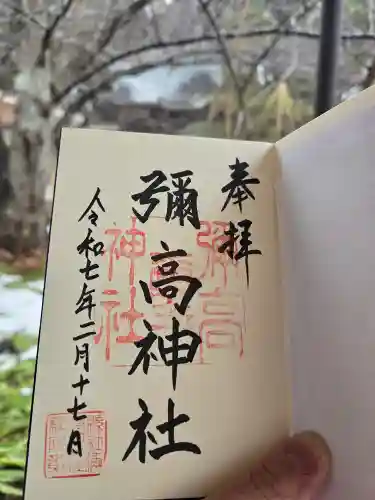 奉拝
彌高神社
令和七年二月十七月
彌高
神社